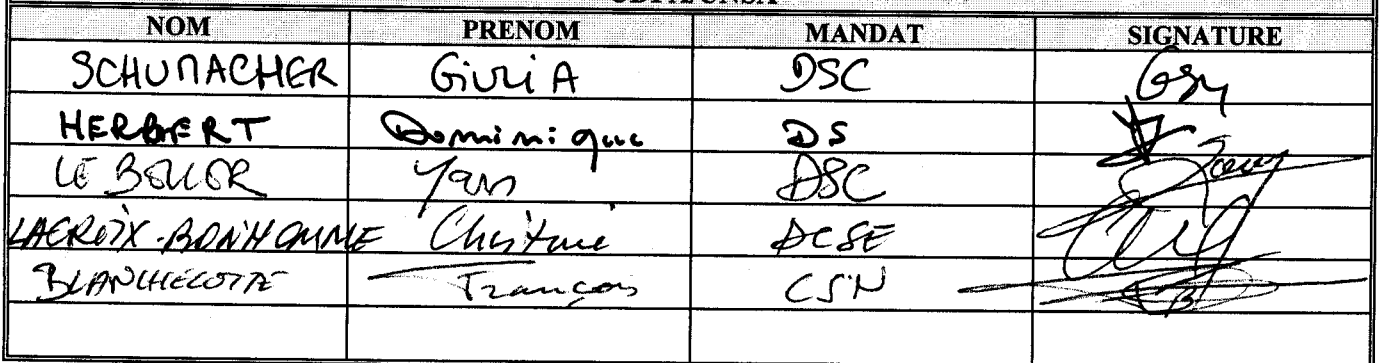 NOM PRENOM MANDAT SIGNATURE
SCHUMACHER GiuliA DSC
HERBERT Dominique DS
Yan DSC
LACROIX-BONHOMME Christine DCSE
BLANCHECOTTE François CSN